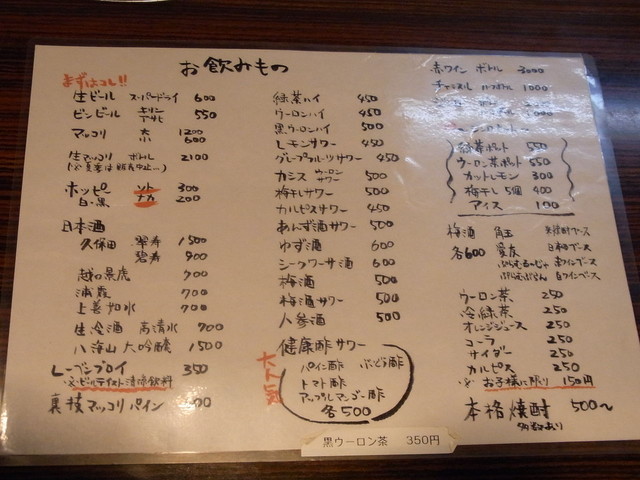 お飲みもの
まずはコレ!!
生ビール スーパードライ 600
ビンビール キリン アサヒ 550
マッコリ 大 1200
小 600
生マッコリ ボトル 2100
ホッピー 白・黒
ソト 300
ナカ 200
日本酒
久保田 翠寿 1500
碧寿 900
越の景虎 700
浦霞 700
上善如水 700
生冷酒 高清水 700
八海山 大吟醸 1500
レーベンブロイ 350
※ビールテイスト清涼飲料
裏技マッコリパイン
緑茶ハイ 450
ウーロンハイ 450
黒ウーロンハイ 500
レモンサワー 450
グレープフルーツサワー 450
カシス ウーロン サワー 500
梅干しサワー 500
カルピスサワー 450
あんず酒サワー 500
ゆず酒 600
シークワーサ酒 600
梅酒 500
梅酒サワー 500
人参酒 500
大人気
健康酢サワー
パイン酢 ぶどう酢
トマト酢
アップルマンゴー酢
各500
赤ワイン ボトル 3000
チャミスル ハーフボトル 1000
緑茶ポット 550
ウーロン茶ポット 550
カットレモン 300
梅干し 5個 400
アイス 100
梅酒 各600
ウーロン茶 250
冷緑茶 250
オレンジジュース 250
コーラ 250
サイダー 250
カルピス 250
※お子様に限り 150円
本格焼酎 500〜
黒ウーロン茶 350円